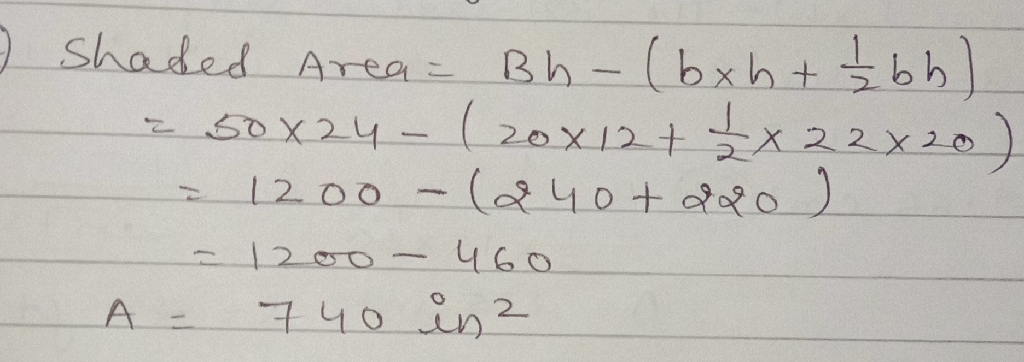 ) Shaded Area = Bh - (b×h + 1/2 bh)
= 50×24 - (20×12 + 1/2 × 22×20)
= 1200 - (240 + 220)
= 1200 - 460
A = 740 in²